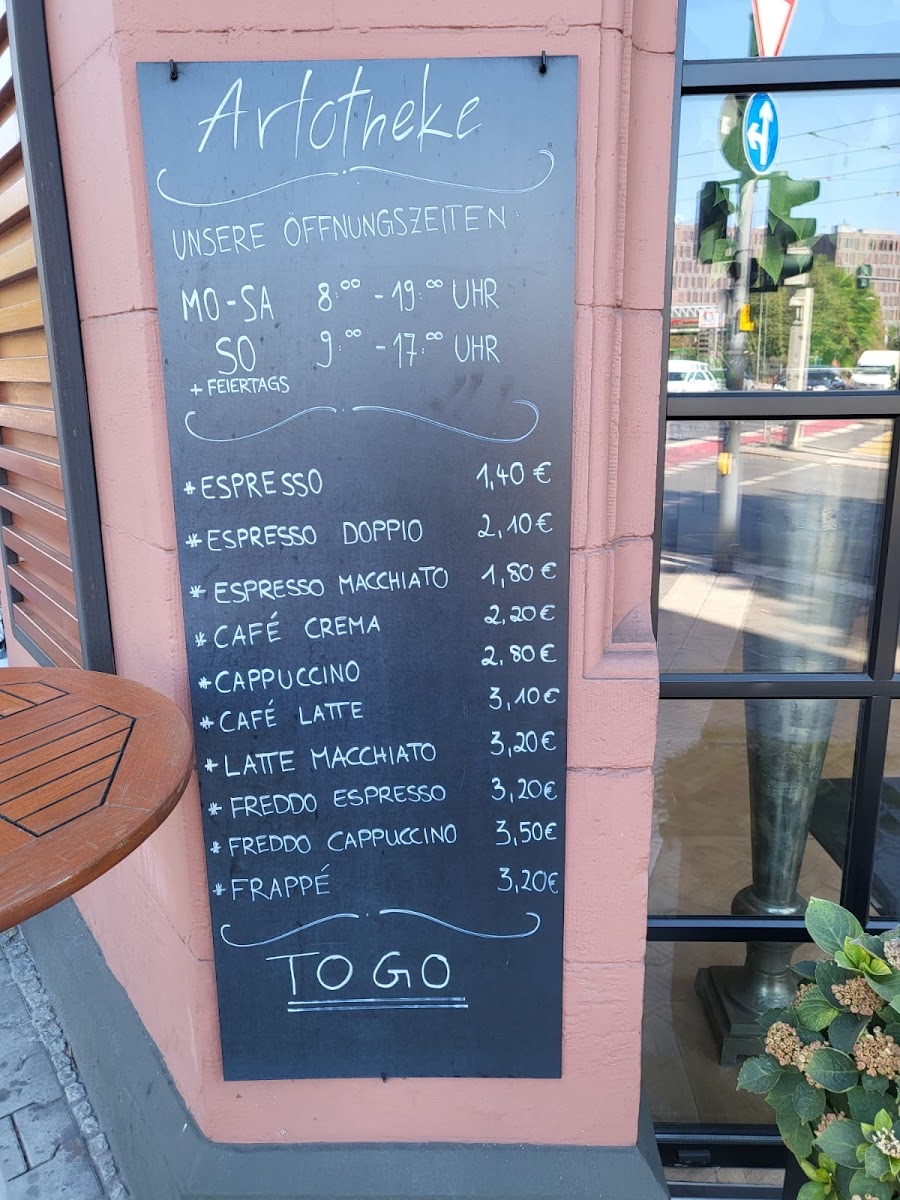 Artotheke
UNSERE ÖFFNUNGSZEITEN:
MO-SA 8:00 - 19:00 UHR
SO 9:00 - 17:00 UHR
+ FEIERTAGS
* ESPRESSO 1,40 €
* ESPRESSO DOPPIO 2,10 €
* ESPRESSO MACCHIATO 1,80 €
* CAFÉ CREMA 2,20 €
* CAPPUCCINO 2,80 €
* CAFÉ LATTE 3,10 €
* LATTE MACCHIATO 3,20 €
* FREDDO ESPRESSO 3,20 €
* FREDDO CAPPUCCINO 3,50 €
* FRAPPÉ 3,20 €
TO GO